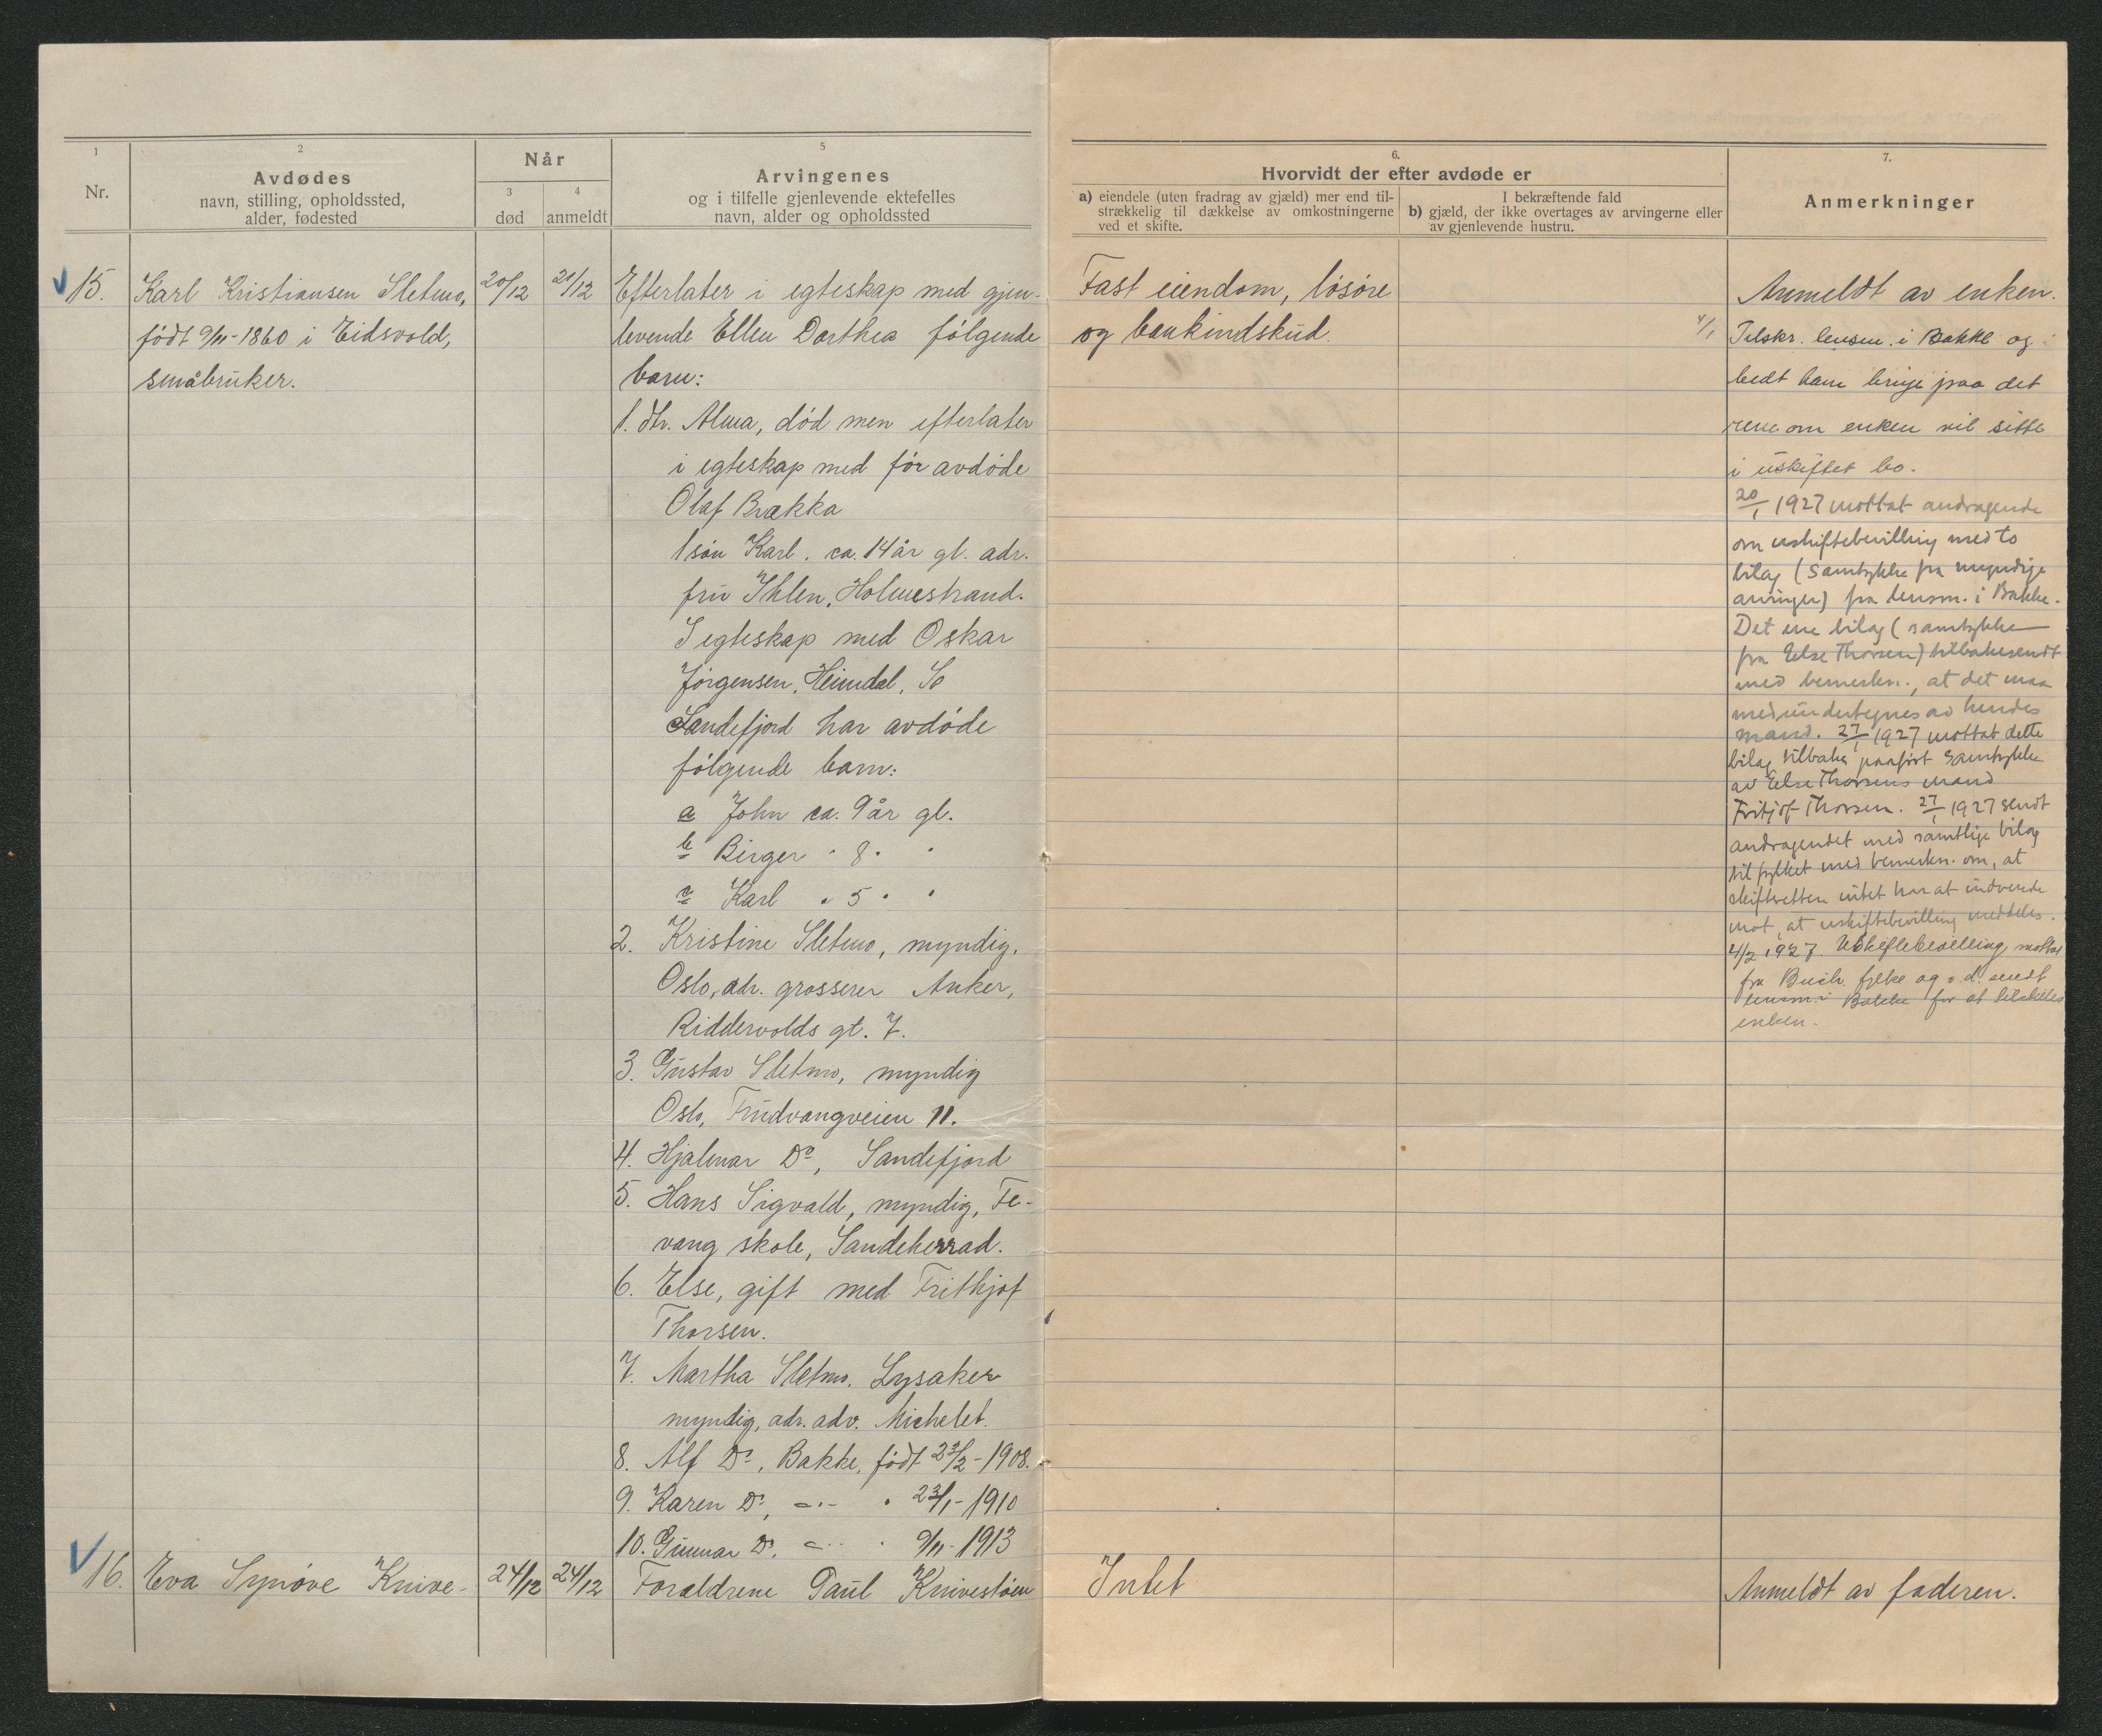 1
Nr.
2
Avdødes
navn, stilling, opholdssted,
alder, fødested
Når
3
død
4
anmeldt
5
Arvingenes
og i tilfelle gjenlevende ektefelles
navn, alder og opholdssted
6.
Hvorvidt der efter avdøde er
a) eiendele (uten fradrag av gjæld) mer end til-
strækkelig til dækkelse av omkostningerne
ved et skifte.
I bekræftende fald
b) gjæld, der ikke overtages av arvingerne eller
av gjenlevende hustru.
7.
Anmerkninger
15.
Karl Kristiansen Sletmo,
født 9/11-1860 i Eidsvold,
småbruker.
20/12
21/12
Efterlater i egteskap med gjen-
levende Ellen Dorthea følgende
barn:
1. dtr. Alma, død men efterlater
i egteskap med før avdøde
Olaf Brækka
1 søn Karl. ca. 14 år gl. adr.
fru Ihlen, Holmestrand.
I egteskap med Oskar
Jørgensen, Heimdal,
Sandefjord har avdøde
følgende barn:
a John ca. 9 år gl.
b Birger " 8 " "
c Karl " 5 " "
2. Kristine Sletmo, myndig,
Oslo, adr. grosserer Anker,
Riddervolds gt. 7.
3. Gustav Sletmo, myndig
Oslo, Trudvangveien 11.
4. Hjalmar Do, Sandefjord
5. Hans Sigvald, myndig, Fe-
vang skole, Sandeherrad.
6. Else, gift med Frithjof
Thorsen.
7. Martha Sletmo. Lysaker
myndig, adr. adv. Michelet.
8. Alf Do, Bakke, født 23/2-1908.
9. Karen Do, -"- " 23/1-1910
10. Gunnar Do, -"- " 9/11-1913
Fast eiendom, løsøre
og bankindskud.
Anmeldt av enken.
4/1 Tilskr. lensm. i Bakke og
bedt ham bringe paa det
rene om enken vil sitte
i uskiftet bo.
20/1 1927 mottat andragende
om uskiftebevilling med to
bilag (samtykke fra myndige
arvinger) fra lensm. i Bakke.
Det ene bilag (samtykke
fra Else Thorsen) tilbakesendt
med bemerkn., at det maa
medundertegnes av hendes
mand. 27/1 1927 mottat dette
bilag tilbake paaført samtykke
av Else Thorsens mand
Fritjof Thorsen. 27/1 1927 sendt
andragendet med samtlige bilag
til fylket med bemerkn. om, at
skifteretten intet har at indvende
mot, at uskiftebevilling meddeles.
4/2 1927. Uskiftebevilling mottat
fra Busk. fylke og s. d. sendt
lensm. i Bakke for at tilstilles
enken.
16.
Eva Synøve Knive-
24/12
24/12
Forældrene Paul Knivestøen
Intet
Anmeldt av faderen.